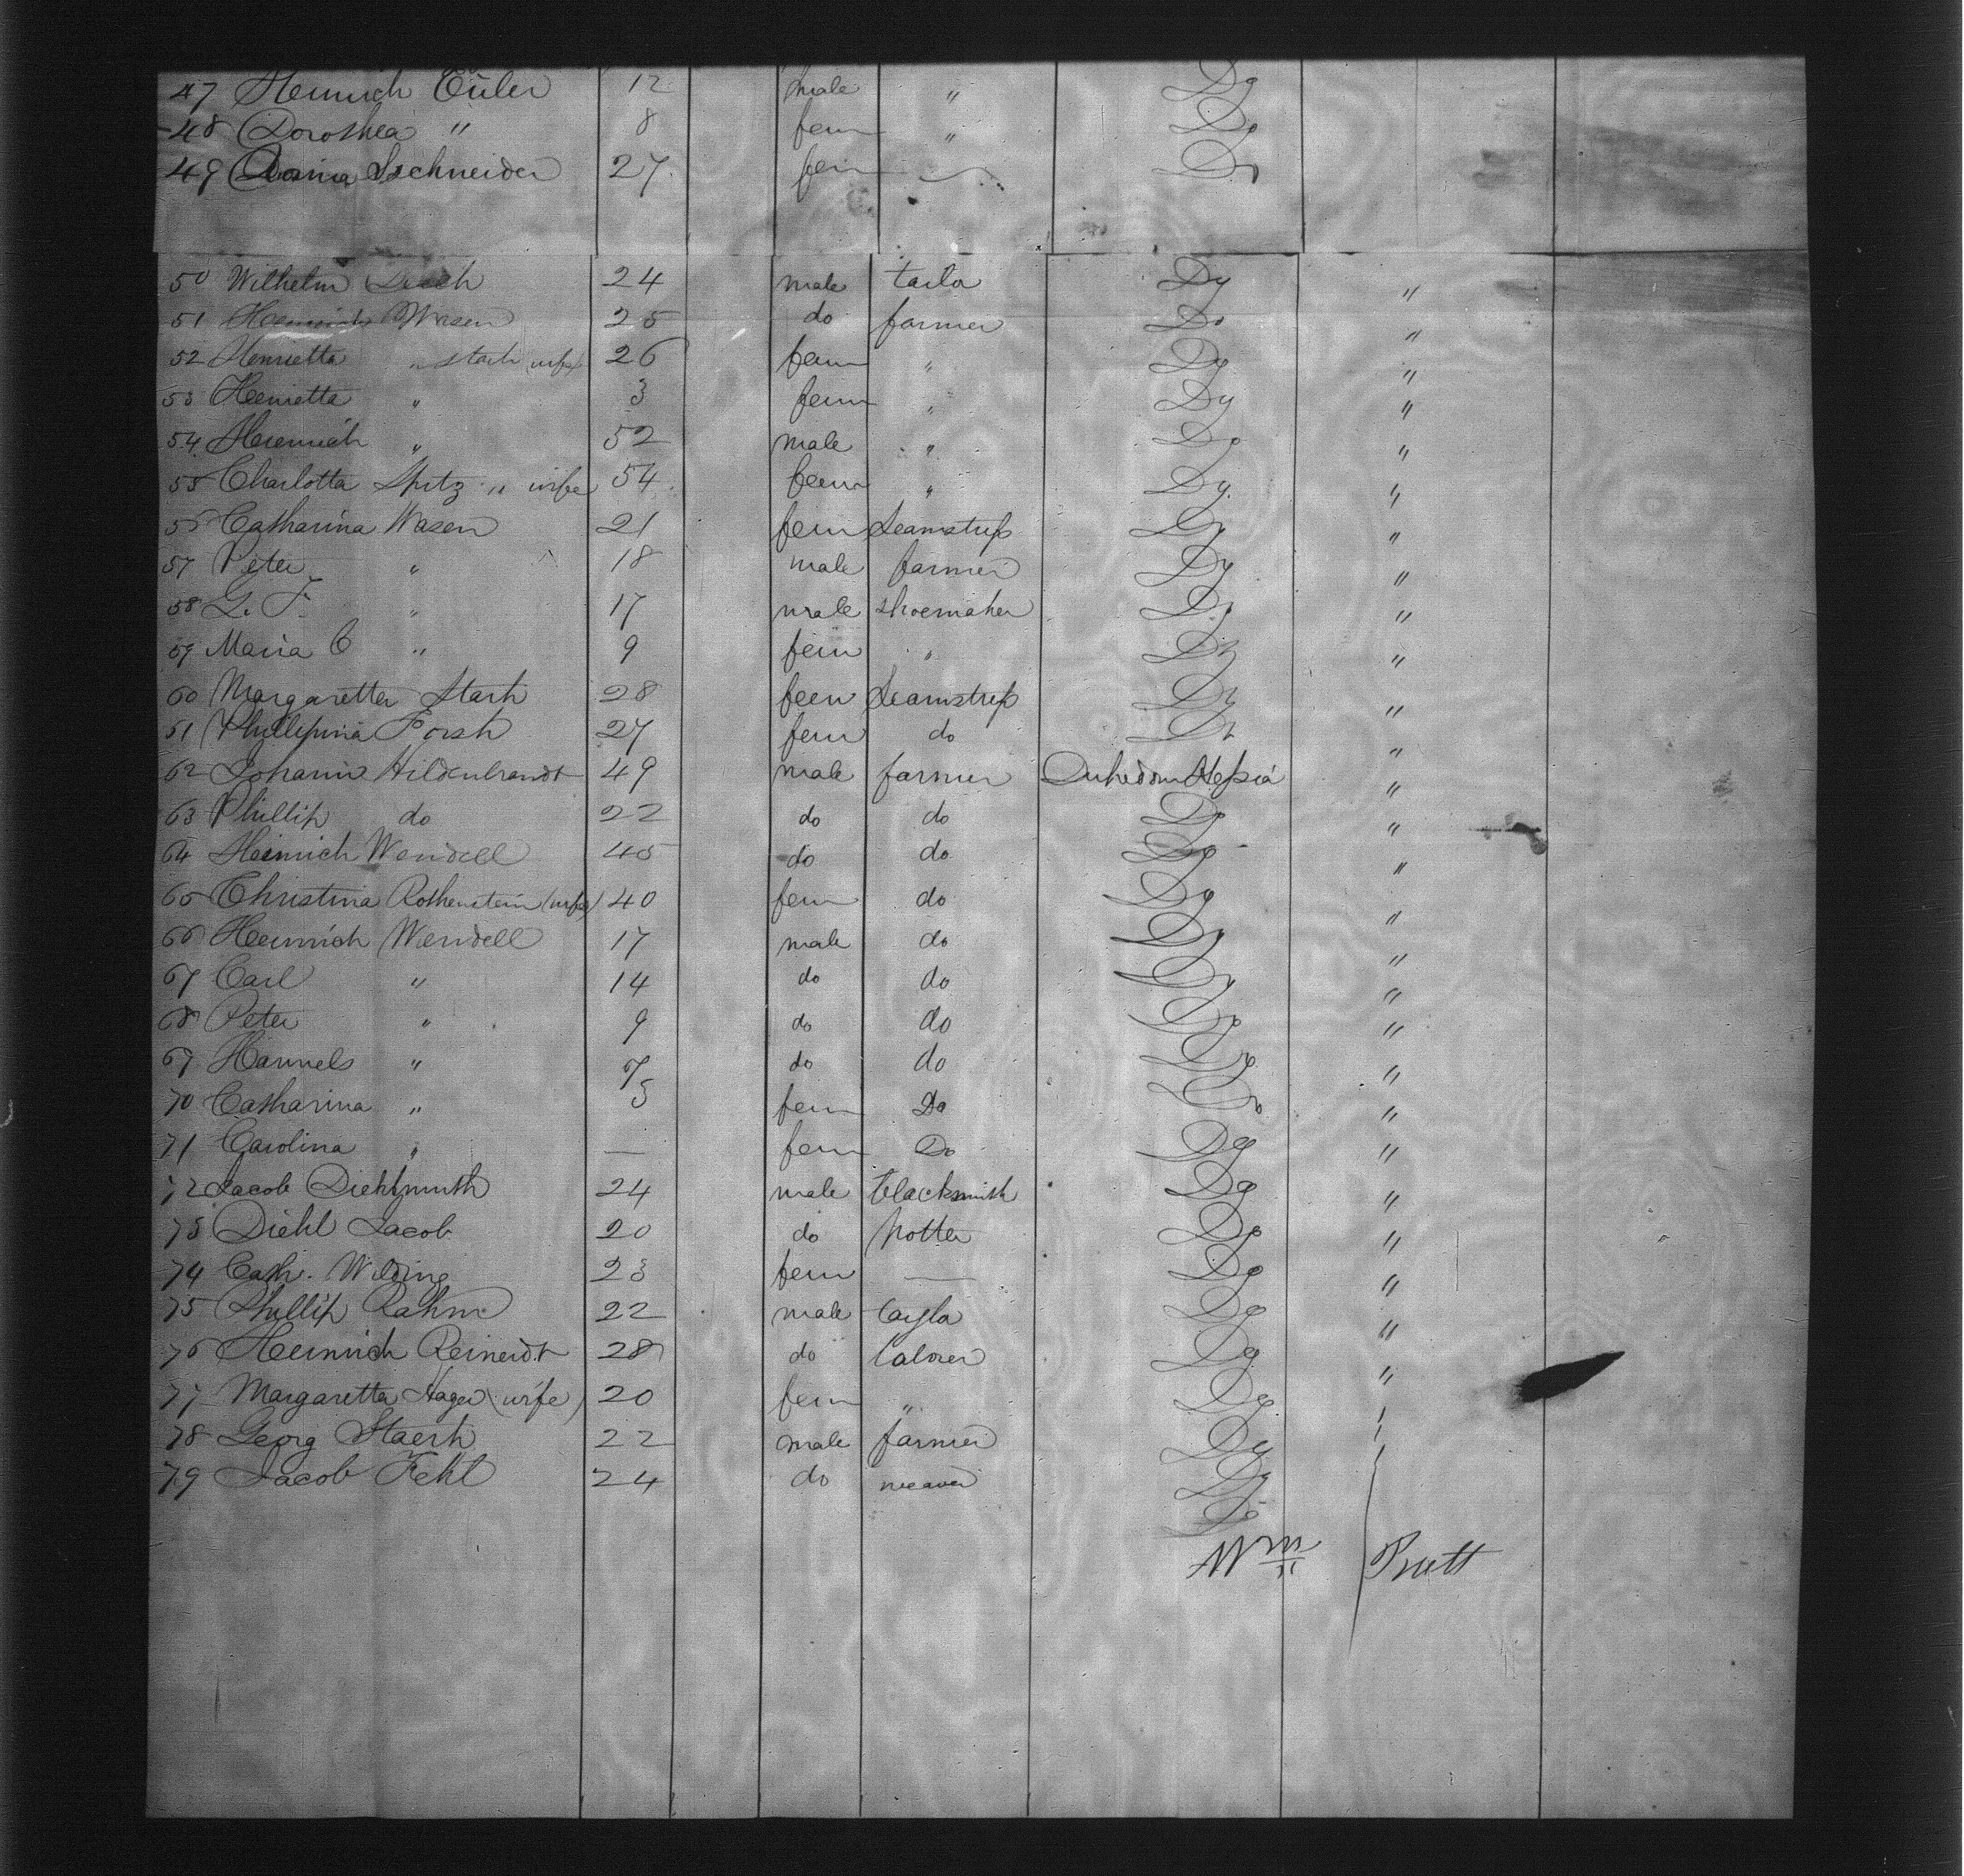 47 Heinrich Euler 12 male " Do
48 Dorothea " 8 fem " Do
49 Schneider 27 fem Do
50 Wilhelm 24 male tailo Do "
51 Heinrich Wasen 25 do farmer Do "
52 Henrietta " Starh (wife) 26 fem " Do "
53 Henietta " 3 fem " Do "
54 Heinrich " 52 male " Do "
55 Charlotta Spitz " wife 54 fem " Do "
56 Catharina Wasen 21 fem Seamstress Do "
57 Peter " 18 male farmer Do "
58 G. F. " 17 male shoemaker Do "
59 Maria C " 9 fem " Do "
60 Margaretta Starh 28 fem Seamstress Do "
61 Phillipina Forsh 27 fem do Do "
62 Johann Hildenbrandt 49 male farmer Dukedom Hessia "
63 Phillip do 22 do do Do "
64 Heinrich Wendell 45 do do Do "
65 Christina Rothenstein (wife) 40 fem do Do "
66 Heinrich Wendell 17 male do Do "
67 Carl " 14 do do Do "
68 Peter " 9 do do Do "
69 Hannels " 7 do do Do "
70 Catharina " 5 fem Do Do "
71 Carolina " — fem Do Do "
72 Jacob Diehlmuth 24 male blacksmith Do "
73 Diehl Jacob 20 do potter Do "
74 Cath. Wilding 23 fem — Do "
75 Phillip Rahm 22 male taylo Do "
76 Heinrich Reinerdt 28 do laborer Do "
77 Margaretta Hager (wife) 20 fem " Do "
78 Georg Staerh 22 male farmer Do "
79 Jacob Fehl 24 do weaver Do
Do
Wm Pratt